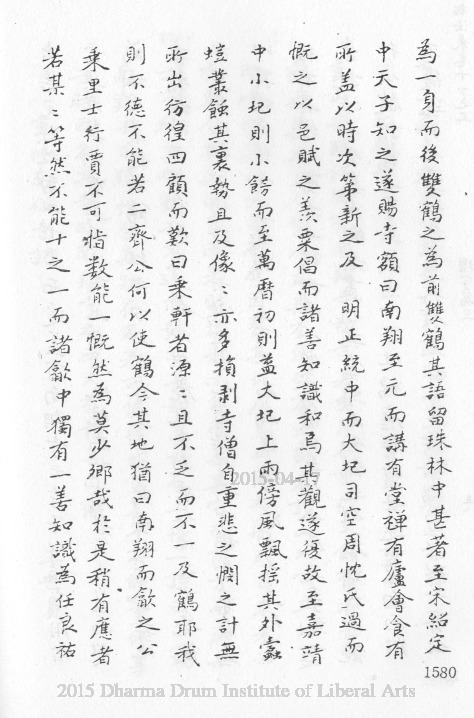 為一身而後雙鶴之為前雙鶴其語留珠林中甚著至宋紹定
中天子知之遂賜寺額曰南翔至元而講有堂禪有廬會食有
所盖以時次第新之及 明正統中而大圮司空周忱氏過而
慨之以邑賦之羨粟倡而諸善知識和焉其觀遂復故至嘉靖
中小圮則小餙而至萬曆初則益大圮上雨傍風飄搖其外蠹
螘叢蝕其裏勢且及像〻亦多損剥寺僧自重悲之憫之計無
所出彷徨四顧而歎曰乗軒者源〻且不乏而不一及鶴耶我
則不德不能若二齊公何以使鶴今其地猶曰南翔而歙之公
乗里士行賈不可指数能一慨然為莫少卿哉於是稍有應者
若某〻等然不能十之一而諸歙中獨有一善知識為任良祐
2015-04-17
1580
2015 Dharma Drum Institute of Liberal Arts